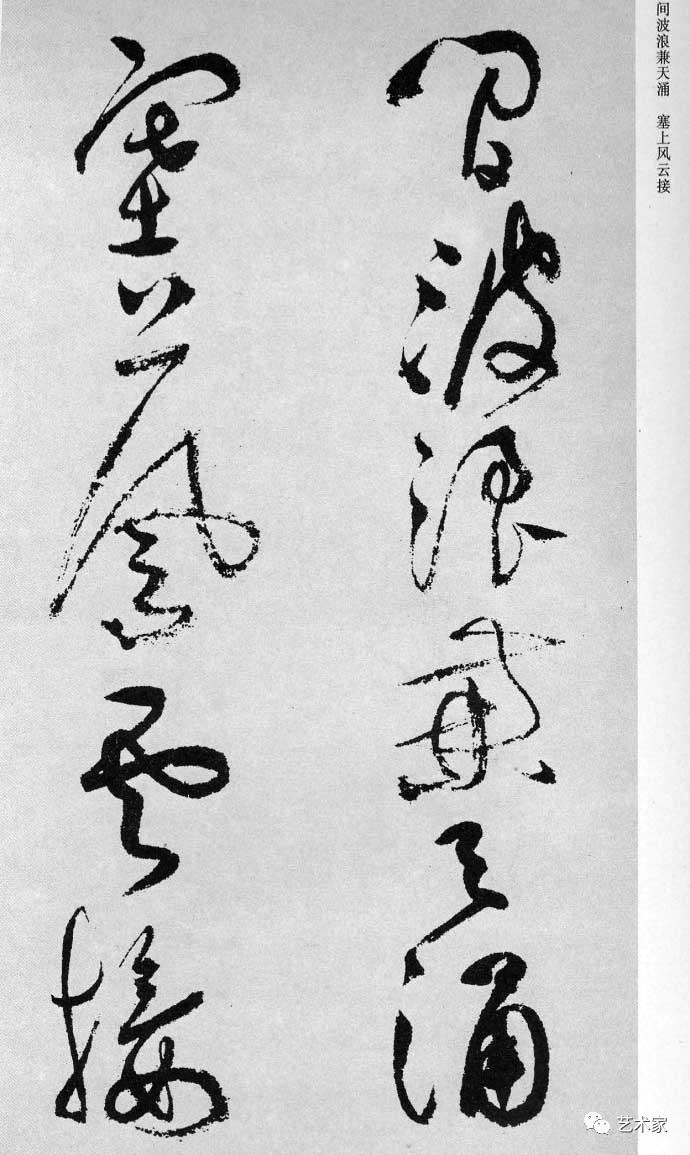 间波浪兼天涌　塞上风云接
間波浪兼天涌
塞上風雲接
艺术家